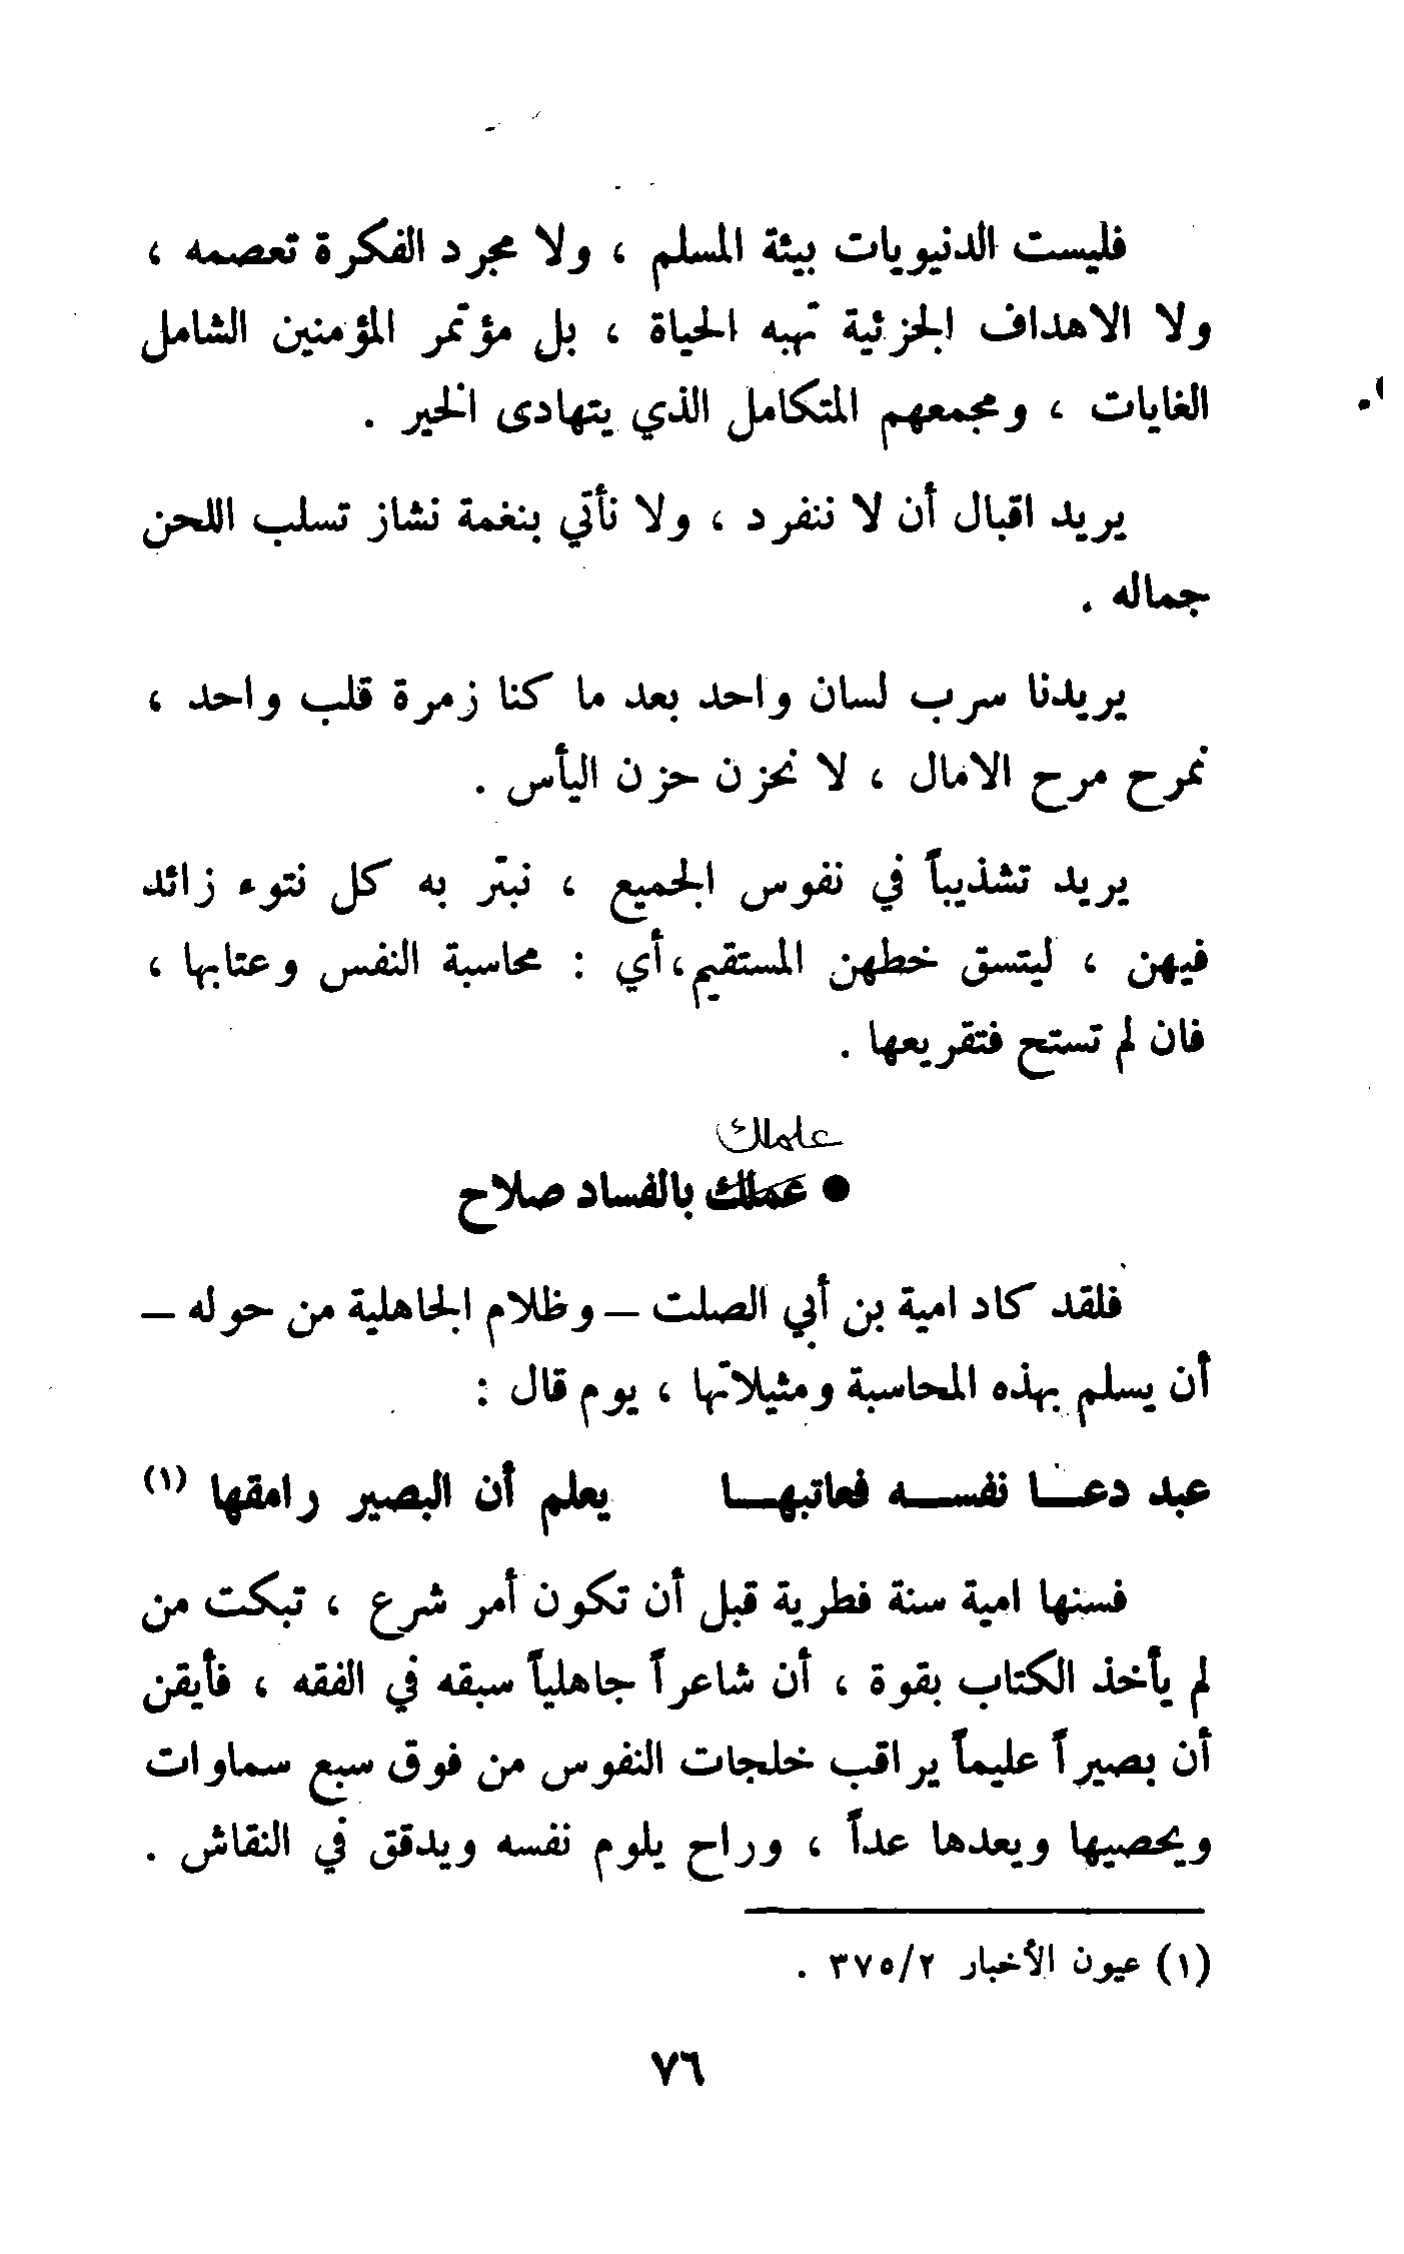 فليست الدنيويات بيئة المسلم ، ولا مجرد الفكرة تعصمه ،
ولا الاهداف الجزئية تهبه الحياة ، بل مؤتمر المؤمنين الشامل
الغايات ، ومجمعهم المتكامل الذي يتهادى الخير .
يريد اقبال أن لا ننفرد ، ولا نأتي بنغمة نشاز تسلب اللحن
جماله .
يريدنا سرب لسان واحد بعد ما كنا زمرة قلب واحد ،
نمرح مرح الامال ، لا نحزن حزن اليأس .
يريد تشذيباً في نفوس الجميع ، نبتر به كل نتوء زائد
فيهن ، ليتسق خطهن المستقيم ، أي : محاسبة النفس وعتابها ،
فان لم تستح فتقريعها .
علملك
● عملك بالفساد صلاح
فلقد كاد امية بن أبي الصلت – وظلام الجاهلية من حوله –
أن يسلم بهذه المحاسبة ومثيلاتها ، يوم قال :
عبد دعـا نفسـه فعاتبهـا يعلم أن البصير رامقها (١)
فسنها امية سنة فطرية قبل أن تكون أمر شرع ، تبكت من
لم يأخذ الكتاب بقوة ، أن شاعراً جاهلياً سبقه في الفقه ، فأيقن
أن بصيراً عليماً يراقب خلجات النفوس من فوق سبع سماوات
ويحصيها ويعدها عداً ، وراح يلوم نفسه ويدقق في النقاش .
(١) عيون الأخبار ٣٧٥/٢ .
٧٦